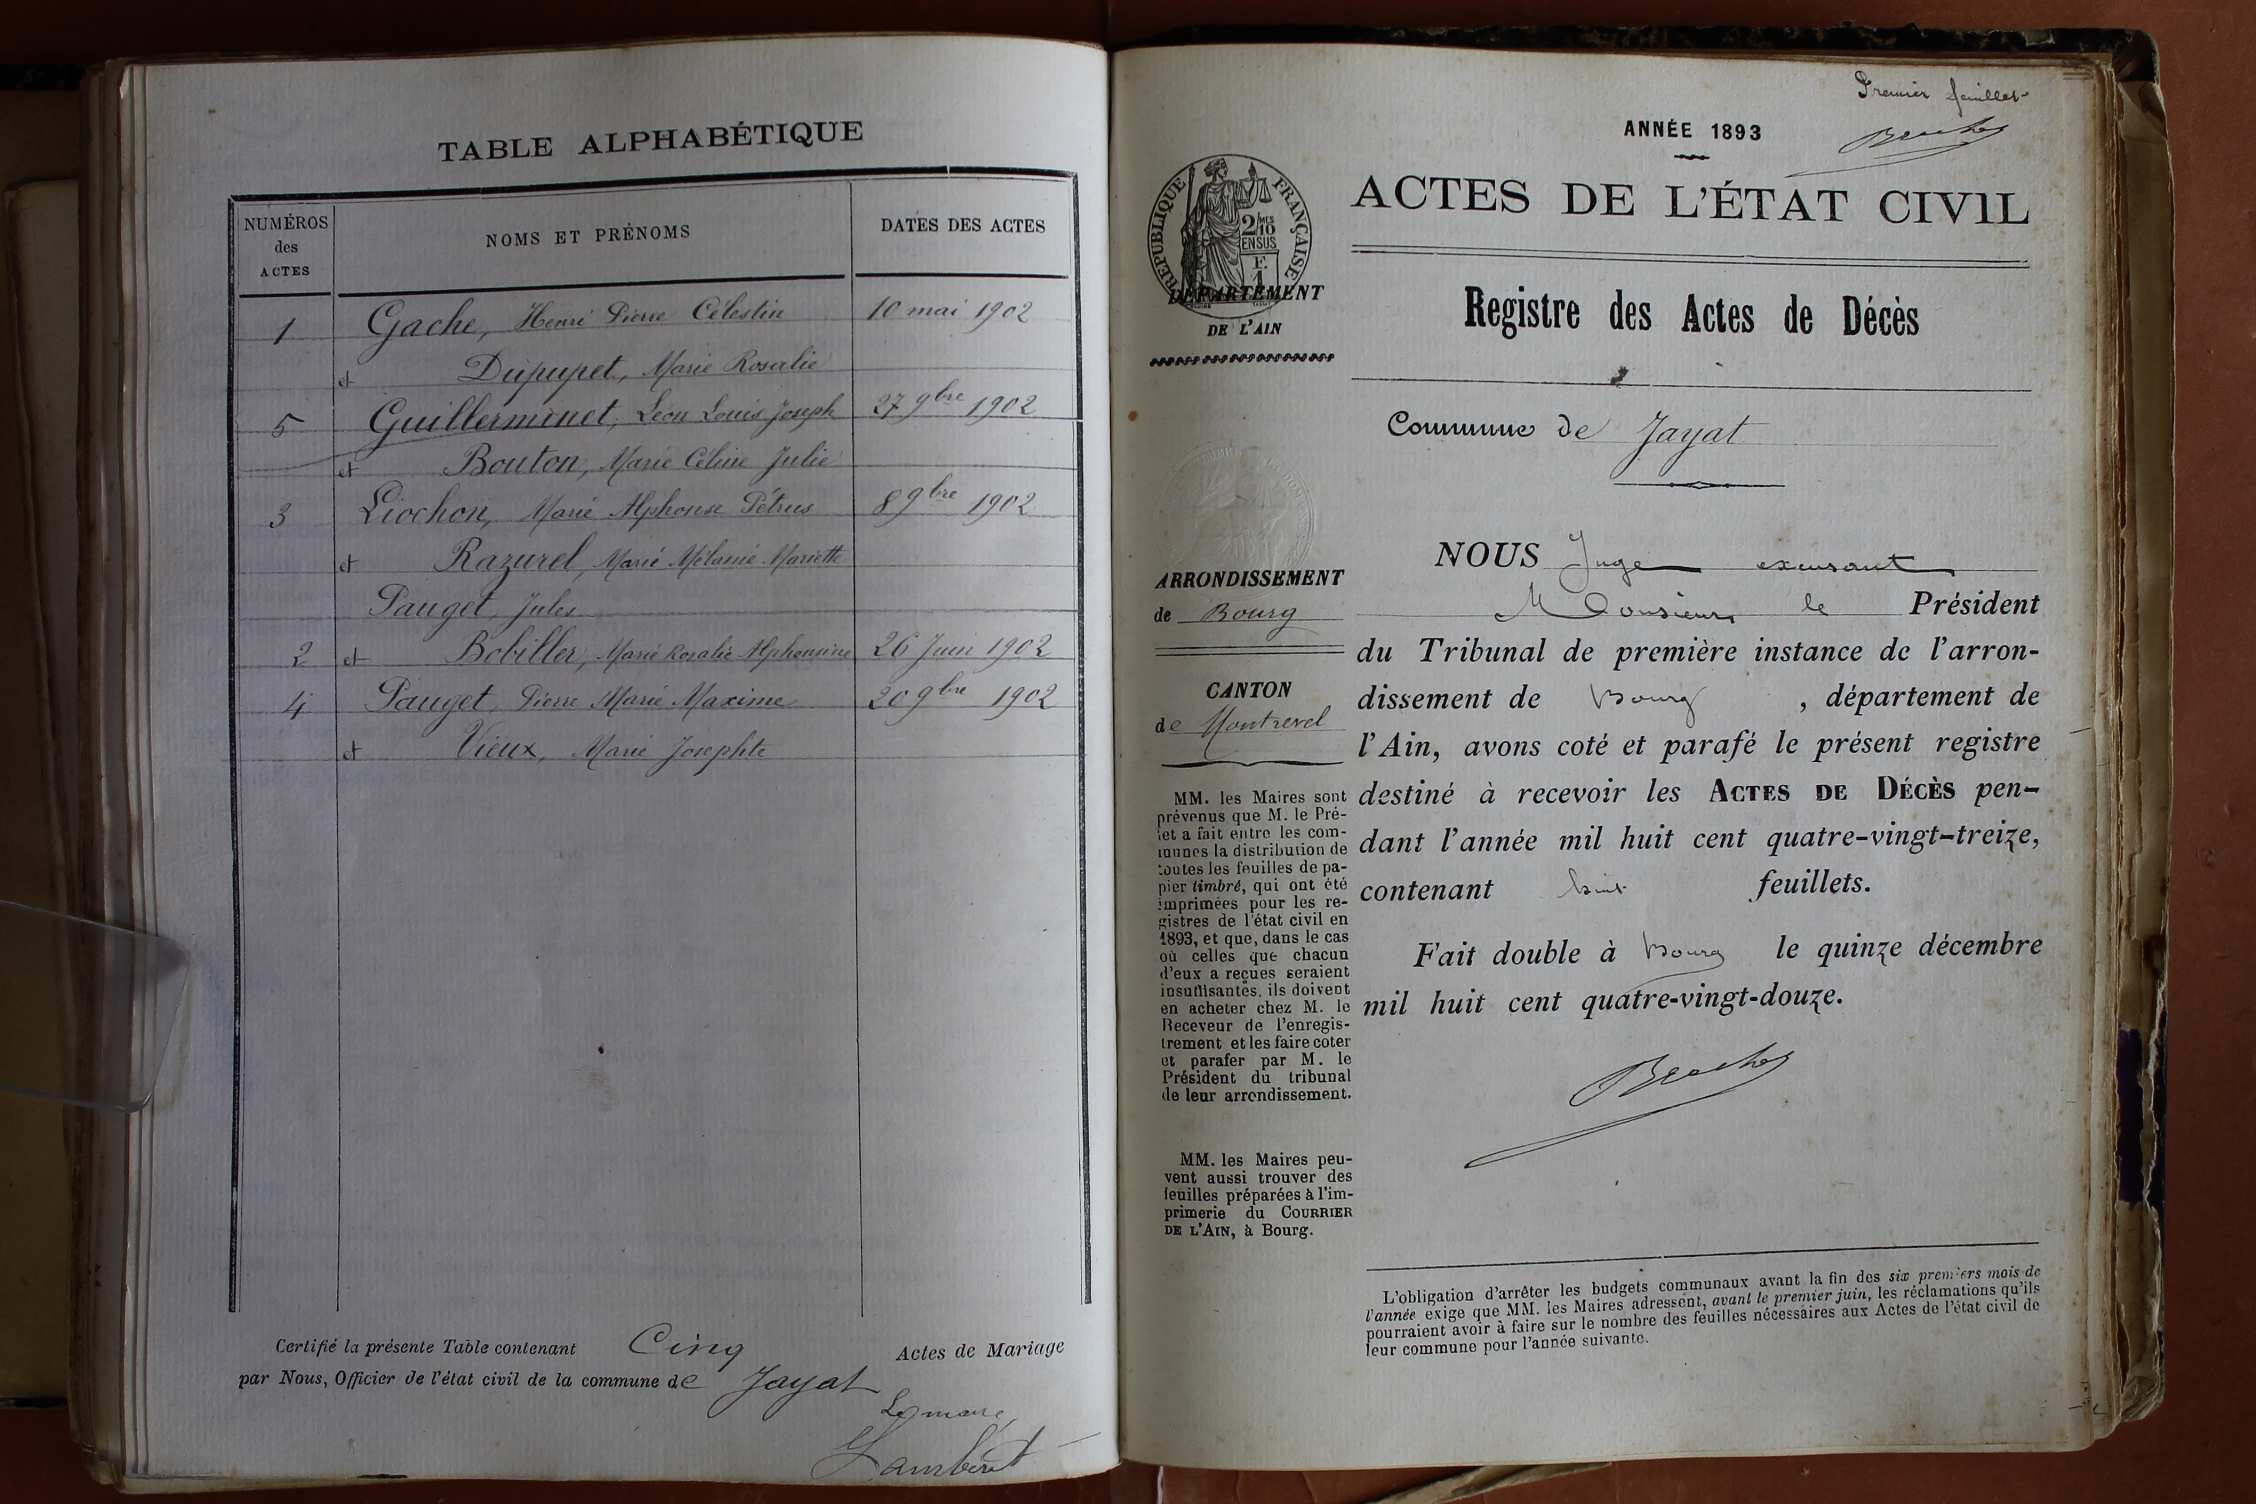 TABLE ALPHABÉTIQUE
NUMÉROS
des
ACTES
NOMS ET PRÉNOMS
DATES DES ACTES
1 Gache, Henri Pierre Célestin 10 mai 1902
et Dupupet, Marie Rosalie
5 Guillerminet, Léon Louis Joseph 27 9bre 1902
et Bouton, Marie Céline Julie
3 Liochon, Marie Alphonse Pétrus 8 9bre 1902
et Razurel, Marie Mélanie Mariette
Pauget, Jules
2 et Bobiller, Marie Rosalie Alphonsine 26 Juin 1902
4 Pauget, Pierre Marie Maxime 20 9bre 1902
et Vieux, Marie Josephte
Certifié la présente Table contenant Cinq Actes de Mariage
par Nous, Officier de l'état civil de la commune de Jayat
Le maire,
Lambert
Premier feuillet
ANNÉE 1893
ACTES DE L'ÉTAT CIVIL
RÉPUBLIQUE FRANÇAISE
2/10 MES
EN SUS
F.
1
DÉPARTEMENT
DE L'AIN
Registre des Actes de Décès
Commune de Jayat
ARRONDISSEMENT
de Bourg
CANTON
de Montrevel
MM. les Maires sont
prévenus que M. le Pré-
fet a fait entre les com-
munes la distribution de
toutes les feuilles de pa-
pier timbré, qui ont été
imprimées pour les re-
gistres de l'état civil en
1893, et que, dans le cas
où celles que chacun
d'eux a reçues seraient
insuffisantes, ils doivent
en acheter chez M. le
Receveur de l'enregis-
trement et les faire coter
et parafer par M. le
Président du tribunal
de leur arrondissement.
MM. les Maires peu-
vent aussi trouver des
feuilles préparées à l'im-
primerie du COURRIER
DE L'AIN, à Bourg.
NOUS Juge excusant
Monsieur le Président
du Tribunal de première instance de l'arron-
dissement de Bourg, département de
l'Ain, avons coté et parafé le présent registre
destiné à recevoir les ACTES DE DÉCÈS pen-
dant l'année mil huit cent quatre-vingt-treize,
contenant huit feuillets.
Fait double à Bourg le quinze décembre
mil huit cent quatre-vingt-douze.
L'obligation d'arrêter les budgets communaux avant la fin des six premiers mois de
l'année exige que MM. les Maires adressent, avant le premier juin, les réclamations qu'ils
pourraient avoir à faire sur le nombre des feuilles nécessaires aux Actes de l'état civil de
leur commune pour l'année suivante.